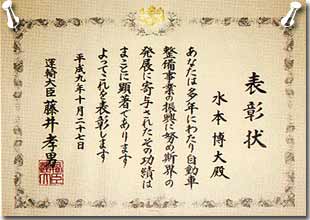 表彰状
水本博大殿
あなたは多年にわたり自動車
整備事業の振興に努め斯界の
発展に寄与されたその功績は
まことに顕著であります
よってこれを表彰します
平成九年十月二十七日
運輸大臣 藤井孝男